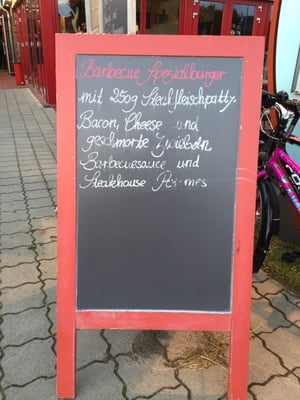 Barbecue Spezialburger
mit 250g Steakfleischpatty
Bacon, Cheese und
geschmorte Zwiebeln
Barbecuesauce und
Steakhouse Pommes